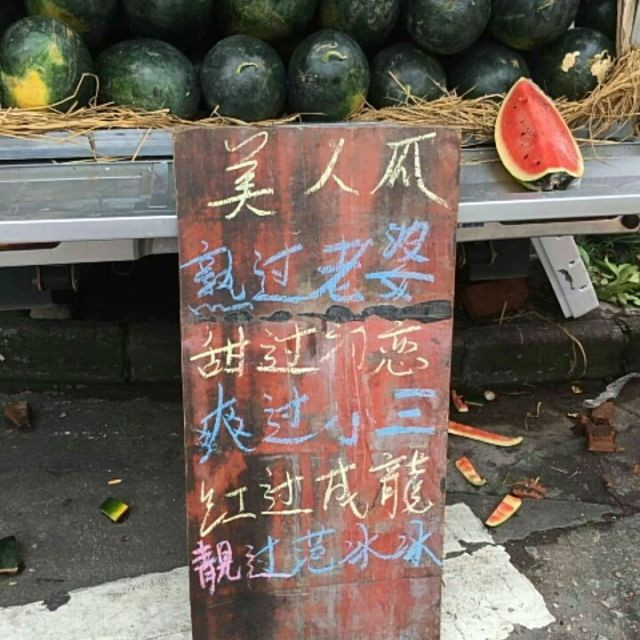 美人瓜
熟过老婆
甜过初恋
爽过小三
红过成龍
靚过范冰冰